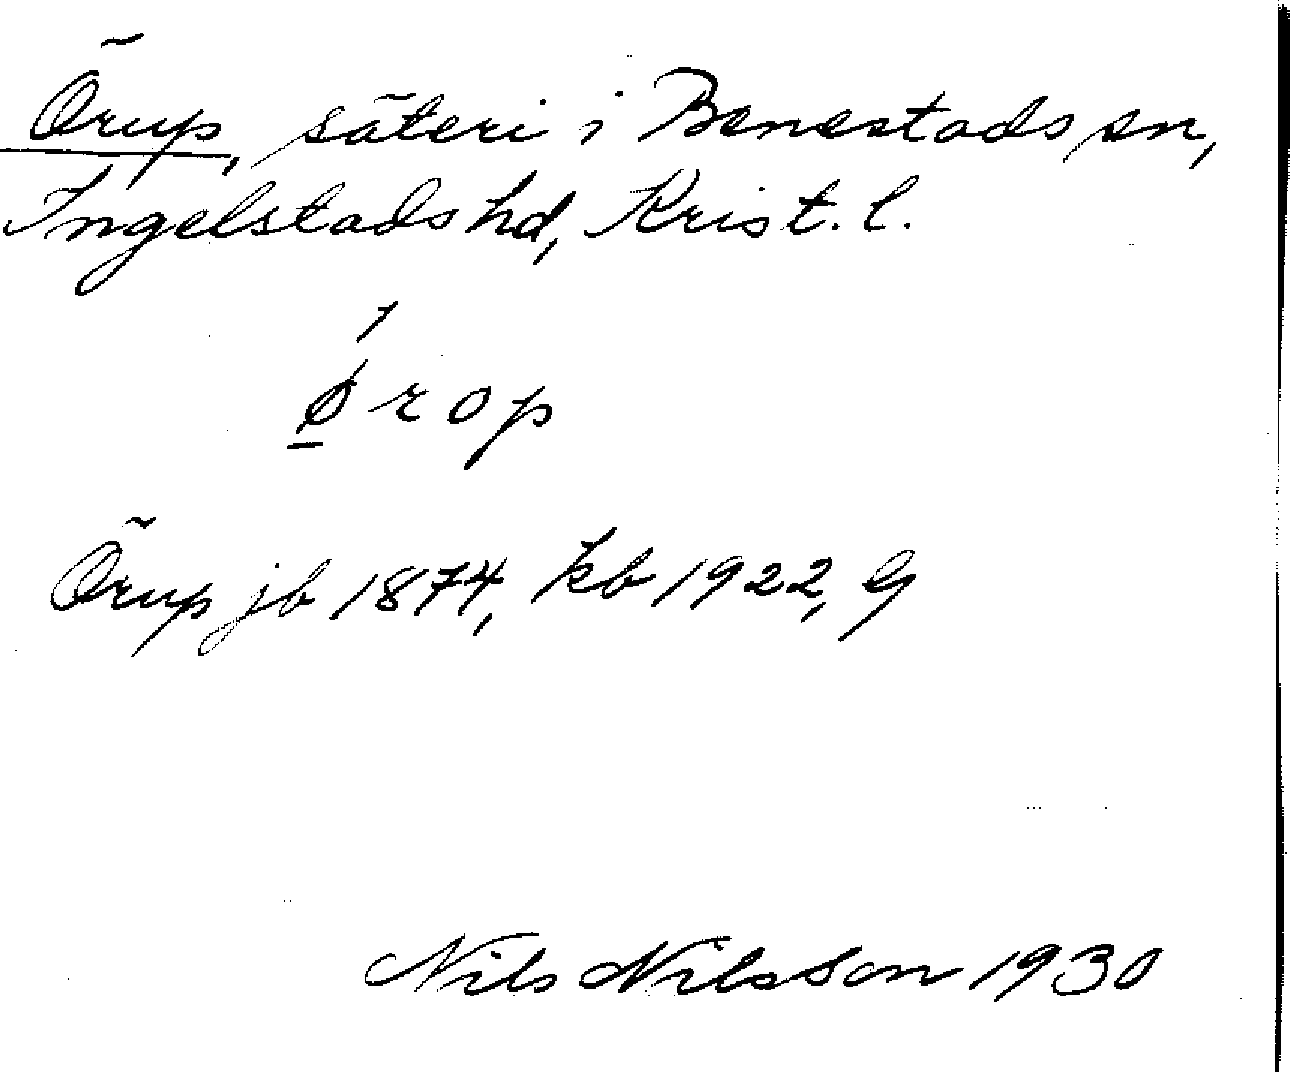 Örup, säteri i Benestads sn,
Ingelstads hd, Krist. l.
ǿ̲rop
Örup jb 1874, kb 1922, G
Nils Nilsson 1930